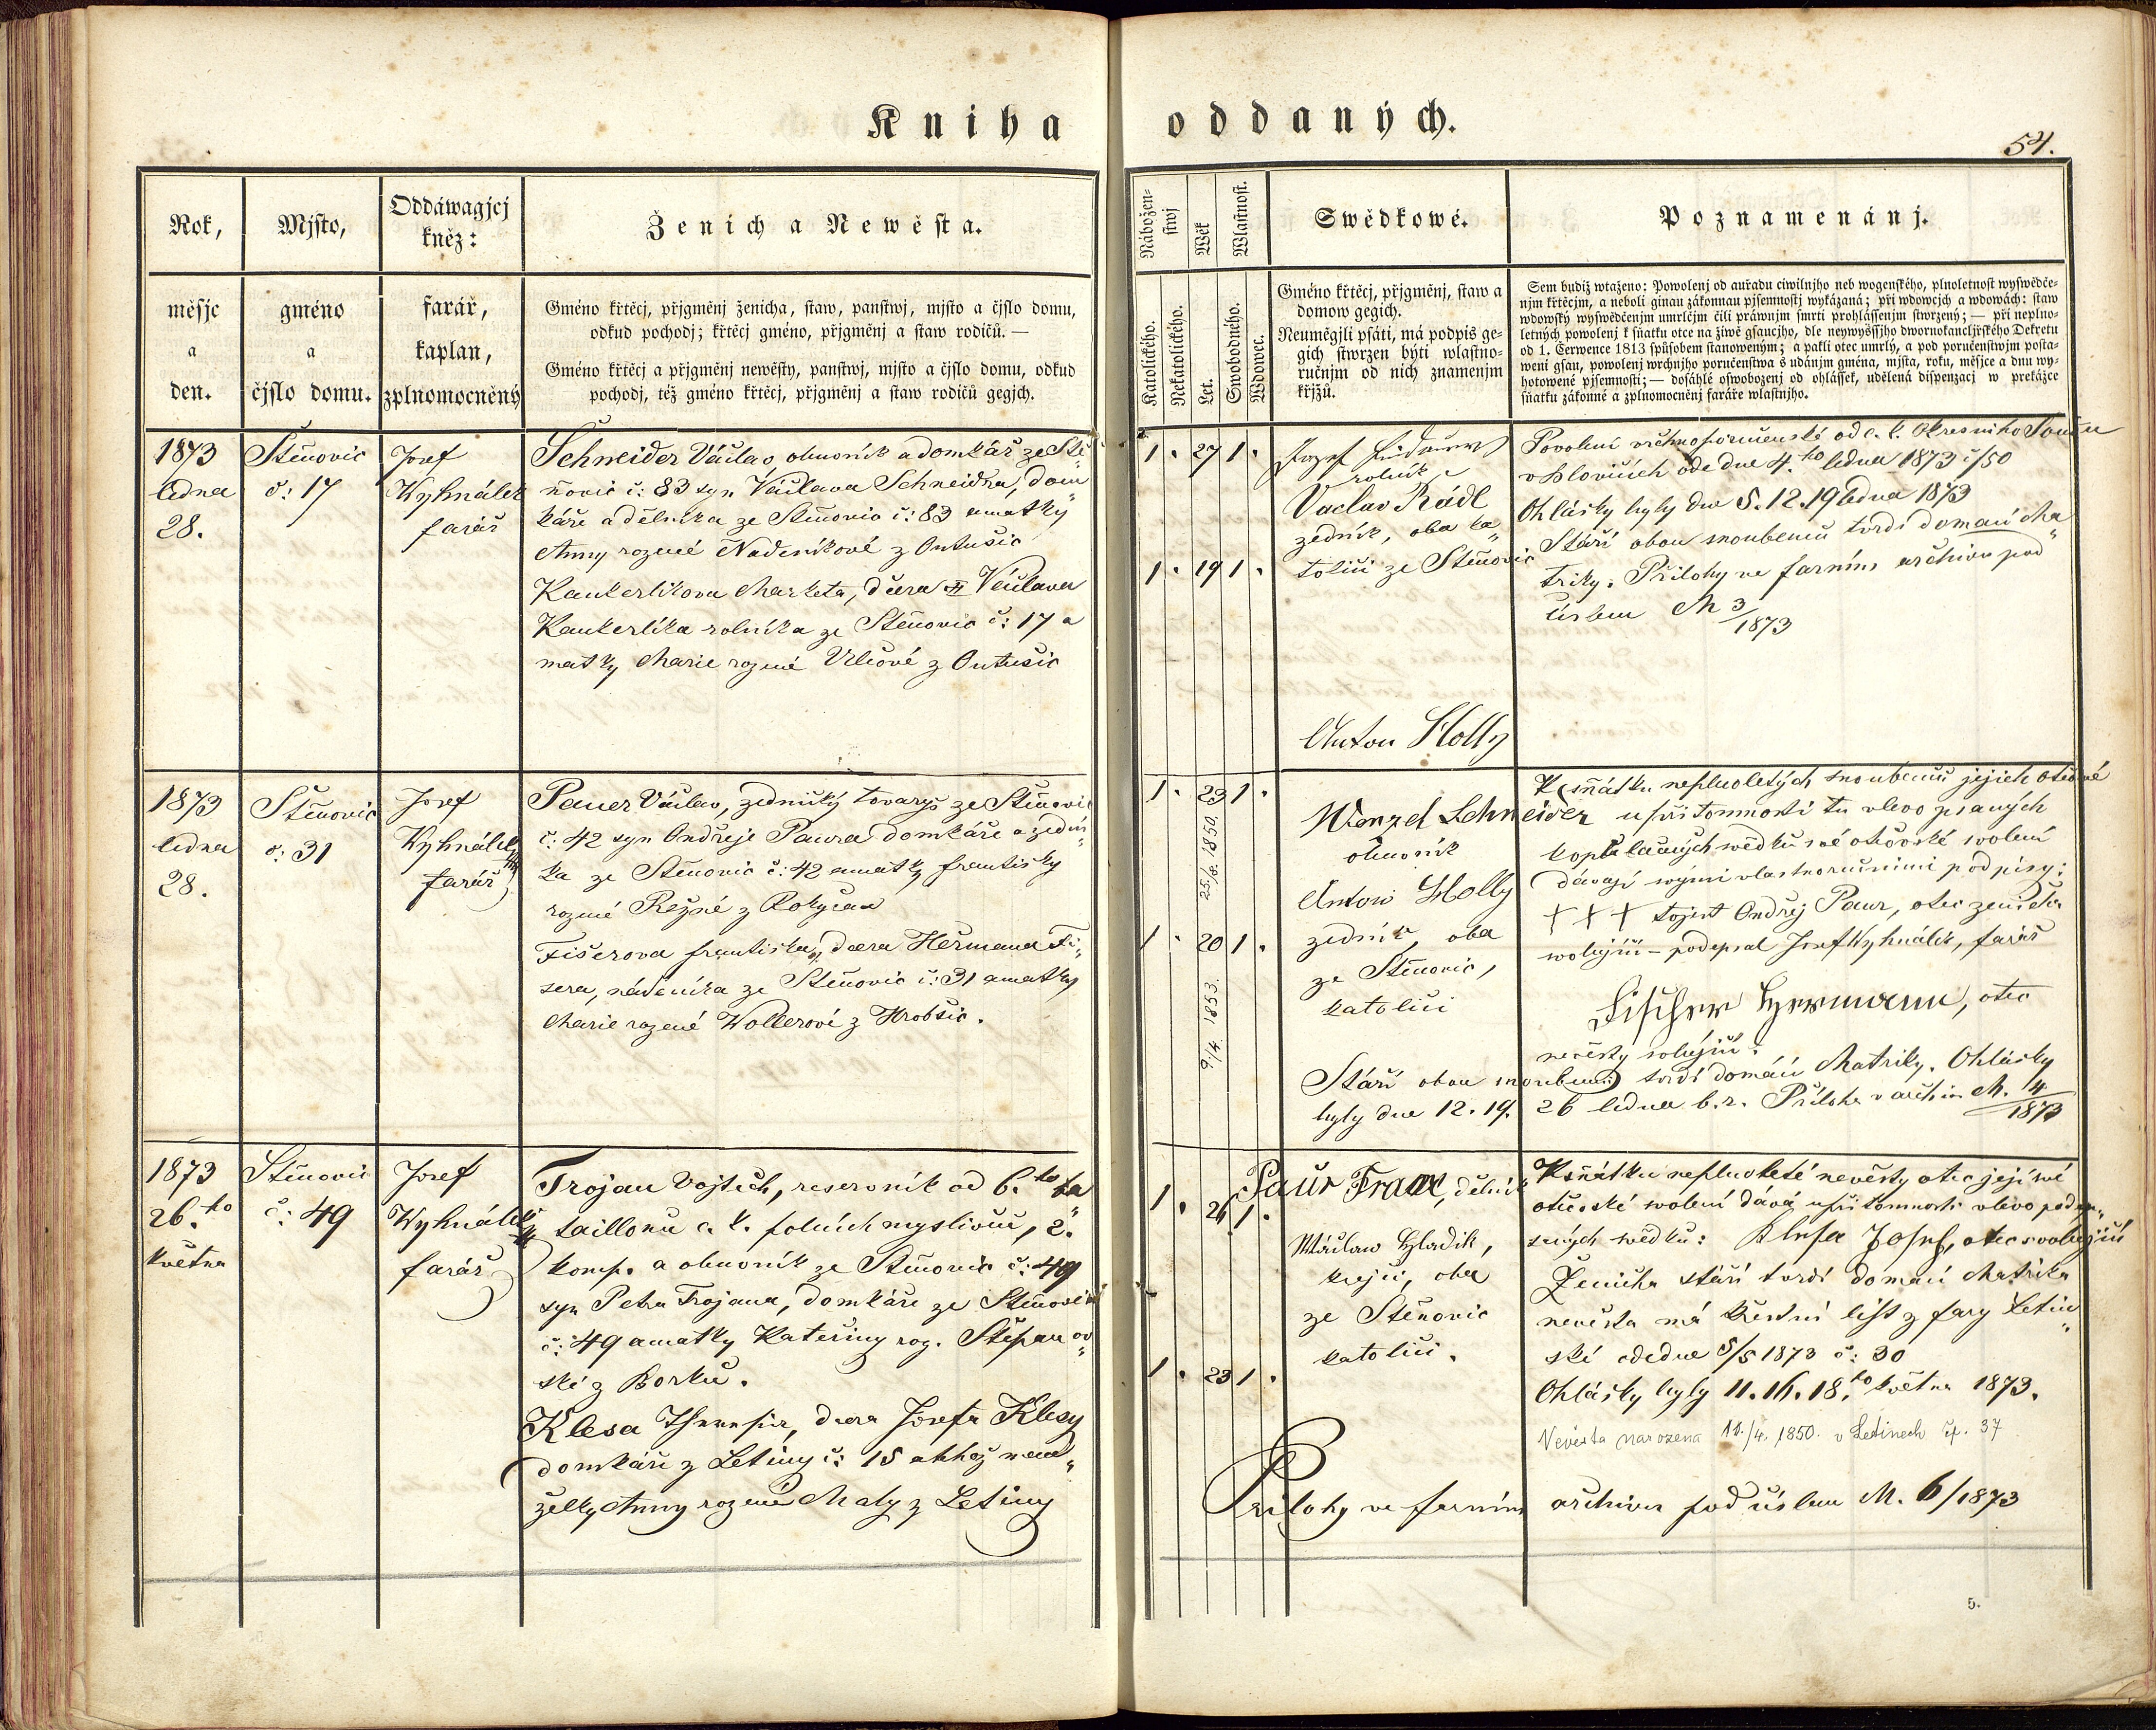 Kniha oddaných.
54.
Rok,
měsjc
a
den.
Mjsto,
gméno
a
čjslo domu.
Oddáwagjcj
kněz:
farář,
kaplan,
zplnomocněný
Ženich a Newěsta.
Gméno křtěcj, přjgměnj ženicha, staw, panstwj, mjsto a čjslo domu,
odkud pochodj; křtěcj gméno, přjgměnj a staw rodičů. —
Gméno křtěcj a přjgměnj newěsty, panstwj, mjsto a čjslo domu, odkud
pochodj, též gméno křtěcj, přjgměnj a staw rodičů gegjch.
Nábožen-
stwj
Katolického.
Nekatolického.
Wěk
Let.
Wlastnost.
Swobodného.
Wdowec.
Swědkowé.
Gméno křtěcj, přjgměnj, staw a
domow gegich.
Neuměgjli psáti, má podpis ge-
gich stwrzen býti wlastno-
ručnjm od nich znamenjm
křjžů.
Poznamenánj.
Sem budiž wtaženo: Powolenj od auřadu ciwilnjho neb wogenského, plnoletnost wyswědče-
njm křtěcjm, a neboli ginau zákonnau pjsemnostj wykázaná; při wdowcjch a wdowách: staw
wdowský wyswědčenjm umrlčjm čili práwnjm smrti prohlássenjm stwrzený; — při neplno-
letných powolenj k sňatku otce na žiwě gsaucjho, dle neywyššjho dwornokancljřského Dekretu
od 1. Čerwence 1813 spůsobem stanoweným; a pakli otec umrlý, a pod poručenstwjm posta-
weni gsau, powolenj wrchnjho poručenstwa s udánjm gména, mjsta, roku, měsjce a dnu wy-
hotowené pjsemnosti; — dosáhlé oswobozenj od ohlássek, udělená dispenzacj w prekážce
sňatku zákonné a zplnomocněnj faráře wlastnjho.
1873
ledna
28.
Stěnovic
č: 17
Josef
Wyhnálek
farář
Schneider Václav, obuvník a domkář ze Stě„
ňovic č: 83 syn Václava Schneidra, dom„
káře a dělníka ze Stěnovic č: 83 a matky
Anny rozené Nadeníkové z Outušic
Kankerlikova Marketa, dcera Václava
Kankerlíka rolníka ze Stěnovic č: 17 a
matky Marie rozené Vlčové z Outušic
1. 27 1.
1. 19 1.
rolník
Vaclav Rádl
zedník, oba ka„
toličí ze Stěnovic
Anton Holly
Povolení vrchnoporučenské od c. k. Okresního Soudu
v Blovicích ode dne 4.ho ledna 1873 č/50
Ohlásky byly dne 5. 12. 19 ledna 1873
Stáří obou snoubenců tvrdí domací Ma„
triky. Přílohy ve farním archivu pod
číslem M 3/1873
1873
ledna
28.
Stěnovic
č: 31
Josef
Wyhnálek
farář
Pauer Václav, zednický tovaryš ze Stěnovic
č: 42 syn Ondřeje Paura domkáře a zední„
ka ze Stěnovic č: 42 a matky Františky
rozené Režné z Rokycan
Fišerova Františka, dcera Heřmana Fi„
šera, nádeníka ze Stěnovic č: 31 a matky
Marie rozené Wollerové z Hrobčic.
1. 23 1.
25/8. 1850.
1. 20 1.
9/4. 1853.
Wenzel Schneider
obuvník
Anton Holly
zedník, oba
ze Stěnovic,
katolíci
K sňátku neplnoletých snoubenců jejich otcové
u přítomnosti tu vlevo psaných
kopulačních svědků své otcovské svolení
dávají svými vlastnoručními podpisy:
+ + + tojest Ondřej Paur, otec ženicha
svolující - podepsal Josef Wyhnálek, farář
Fischer Hermann, otec
nevěsty svolující.
Stáří obou snoubenců tvrdí domácí Matriky. Ohlásky
byly dne 12. 19. 26 ledna b. r. Příloha v archivu M. 4/1873
1873
26.ho
května
Stěnovic
č: 49
Josef
Wyhnálek
farář
Trojan Vojtěch, reservník od 6.ho ba„
taillonu c. k. polních myslivců, 2.
komp. a obuvník ze Stěnovic č: 49
syn Petra Trojana, domkáře ze Stěnovic
č: 49 a matky Kateřiny roz. Štěpanov„
ské z Borku.
Klesa Theresie, dcera Josefa Klesy
domkáře z Letiny č: 15 a téhož man„
želky Anny rozené Maly z Letiny
1. 26 1.
1. 23 1.
Paur Franc, dělník
Václav Hladik,
krejčí, oba
ze Stěnovic
katolíci.
K sňátku neplnoleté nevěsty otec její své
otcovské svolení dává u přítomnosti vlevo podep„
saných svědků: Klesa Josef, otec svolující
Ženicha stáří tvrdí domácí Matrika
nevěsta má křestní list z fary Letin„
ské ode dne 5/5 1873 č: 30
Ohlásky byly 11. 16. 18.ho května 1873.
Nevěsta narozena 10./4. 1850. v Letinech čp. 37
Přílohy ve farním archivu pod číslem M. 6/1873
5.